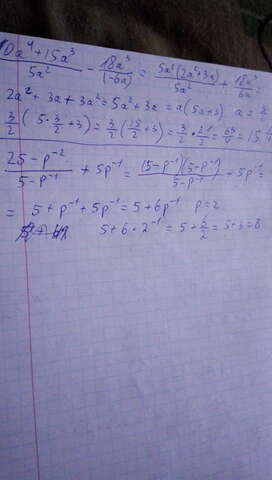 0a⁴+15a³/5a² - 18a³/(-6a) = 5a²(2a²+3a)/5a² + 18a³/6a =
2a² + 3a + 3a² = 5a²+3a = a(5a+3) a = 3/2
3/2 (5·3/2+3) = 3/2 (15/2+3) = 3/2 · 21/2 = 63/4 = 15.
25-p⁻²/5-p⁻¹ + 5p⁻¹ = (5-p⁻¹)(5+p⁻¹)/5-p⁻¹ + 5p⁻¹ =
= 5+p⁻¹+5p⁻¹ = 5+6p⁻¹ p=2
5+6·2⁻¹ = 5+6/2 = 5+3=8